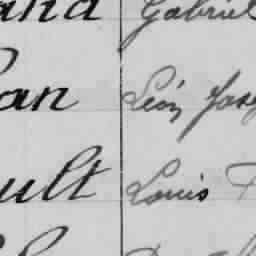 and Gabriel
an Léon Jose
ult Louis